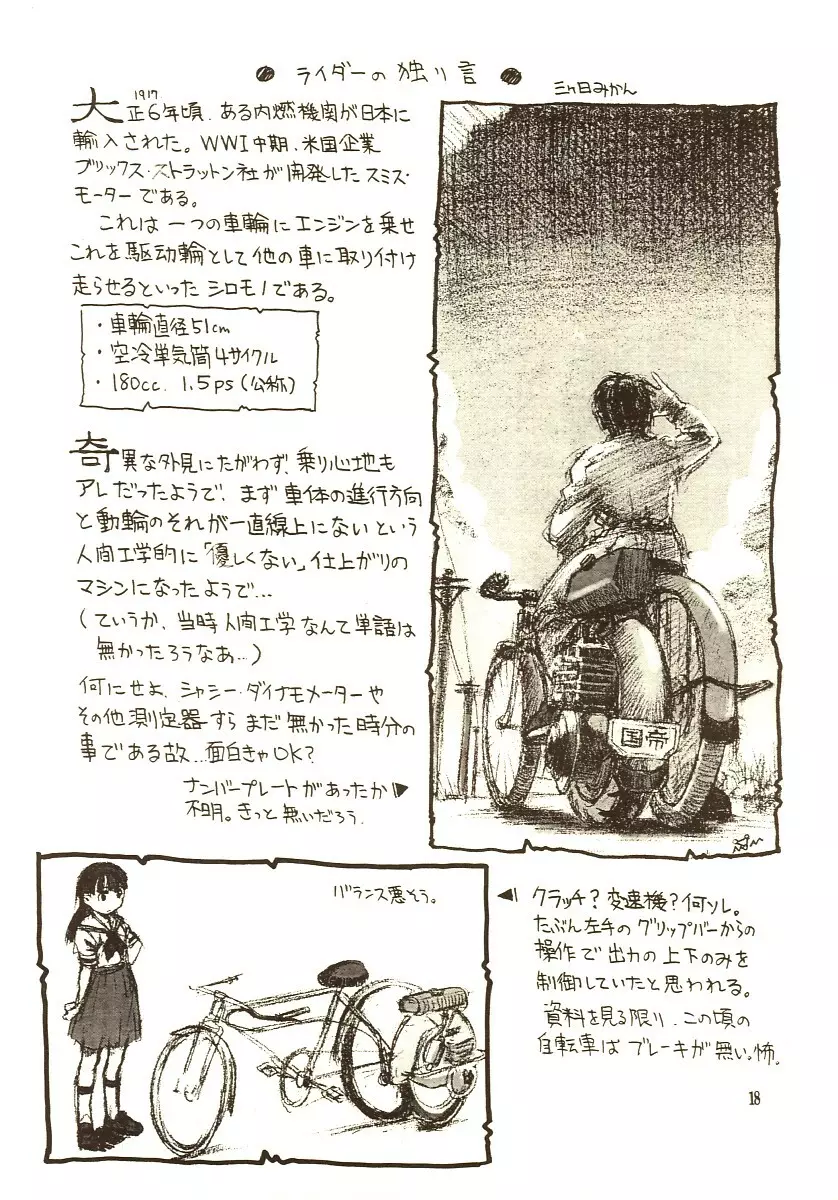 ● ライダーの独り言 ●
三ヶ日みかん
1917
大正6年頃、ある内燃機関が日本に
輸入された。WWI中期、米国企業
ブリックス・ストラットン社が開発したスミス・
モーターである。
これは一つの車輪にエンジンを乗せ
これを駆動輪として他の車に取り付け
走らせるといったシロモノである。
・車輪直径51cm
・空冷単気筒4サイクル
・180cc. 1.5ps(公称)
奇異な外見にたがわず、乗り心地も
アレだったようで、まず車体の進行方向
と動輪のそれが一直線上にないという
人間工学的に「優しくない」仕上がりの
マシンになったようで…
(ていうか、当時人間工学なんて単語は
無かったろうなあ…)
何にせよ、シャシー・ダイナモメーターや
その他測定器すらまだ無かった時分の
事である故…面白きゃOK?
ナンバープレートがあったか▶
不明。きっと無いだろう.
国帝
バランス悪そう。
◀クラッチ?変速機?何ソレ。
たぶん左手のグリップバーからの
操作で出力の上下のみを
制御していたと思われる。
資料を見る限り、この頃の
自転車はブレーキが無い。怖.
18